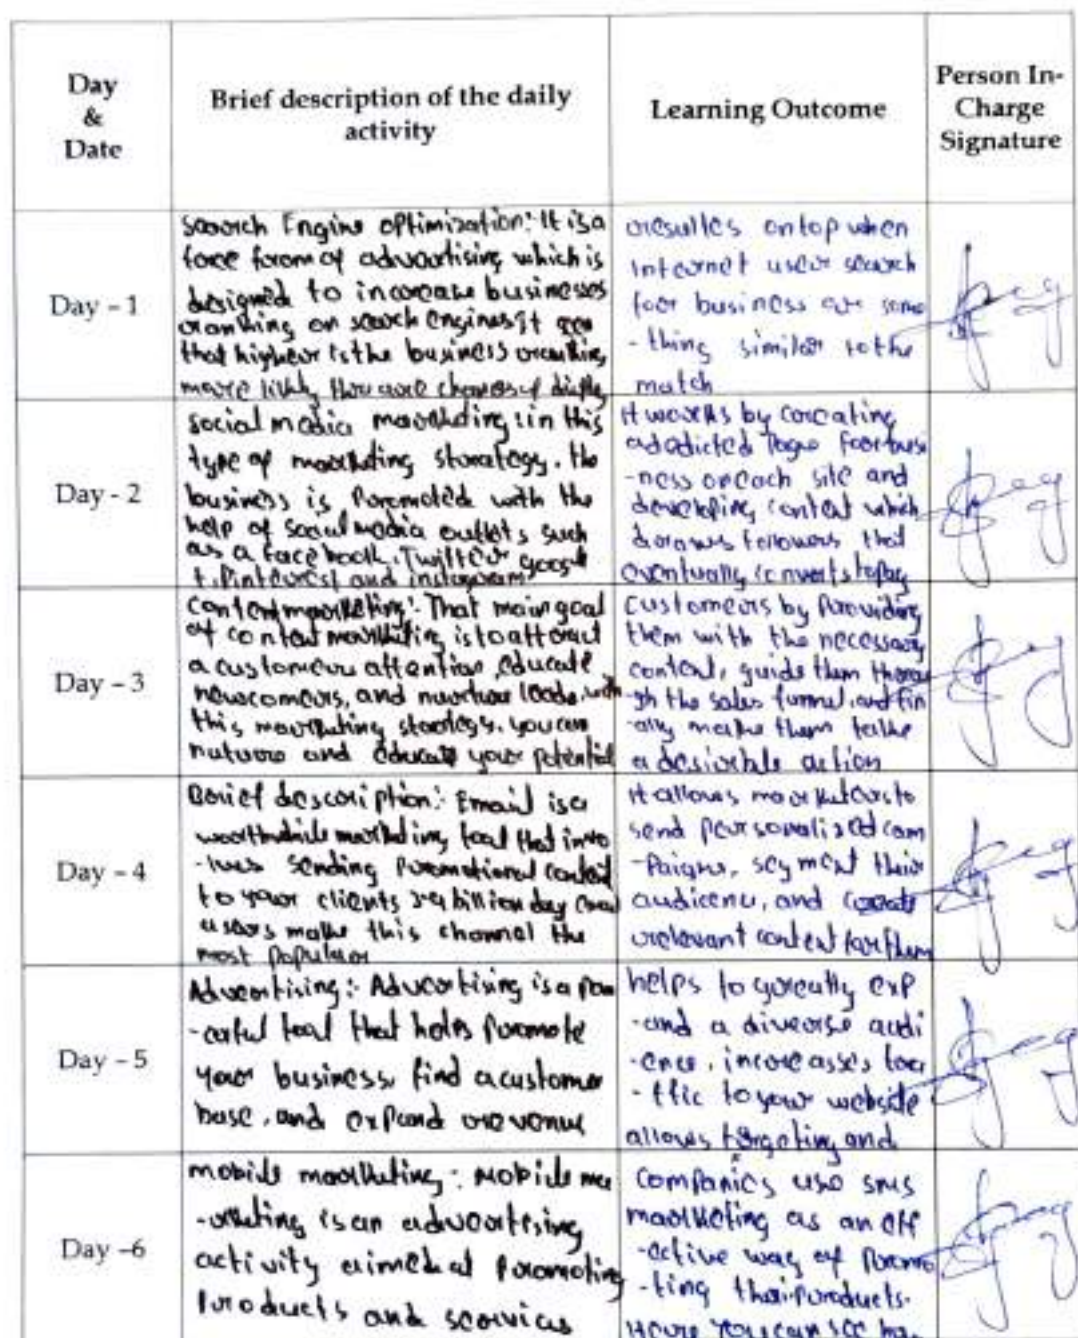 Day
&
Date
Brief description of the daily
activity
Learning Outcome
Person In-
Charge
Signature
Day – 1
Search Engine optimization: It is a
form of advertising which is
designed to increase businesses
ranking on search engines It
that higher is the business ranking
more likly there are chances of
results on top when
Internet user search
for business or some
-thing similar to the
match
Day - 2
social media marketing: in this
type of marketing strategy. the
business is Promoted with the
help of social media outlets such
as a facebook, Twitter google
+, Pinterest and instagram
it works by creating
a Page for busi
-ness on each site and
developing content which
draws followers that
eventually converts to
Day – 3
Content marketing: That main goal
of content marketing is to attract
a customer attention, educate
newcomers, and nurture leads, with
this marketing strategy. you can
and educate your potential
Customers by Providing
them with the necessary
content, guide them throu
-gh the sales funnel, and fin
-ally make them take
a desirable action
Day – 4
Brief description: Email is a
worthwhile marketing tool that invo
-lves sending Promotional content
to your clients billion day
users make this channel the
most Popular
it allows marketers to
send personalized cam
-Paigns, segment their
audience, and create
relevant content for them
Day – 5
Advertising: Advertising is a Pow
-erful tool that helps Promote
your business, find a customer
base, and expand revenue
helps to greatly exp
-and a diverse audi
-ence, increasses tra
-ffic to your website
allows targeting and
Day –6
mobile marketing: Mobile ma
-rketing is an advertising
activity aimed at Promoting
Products and services
Companies use sms
marketing as an eff
-ective way of Promo
-ting their Products.
Here you can see